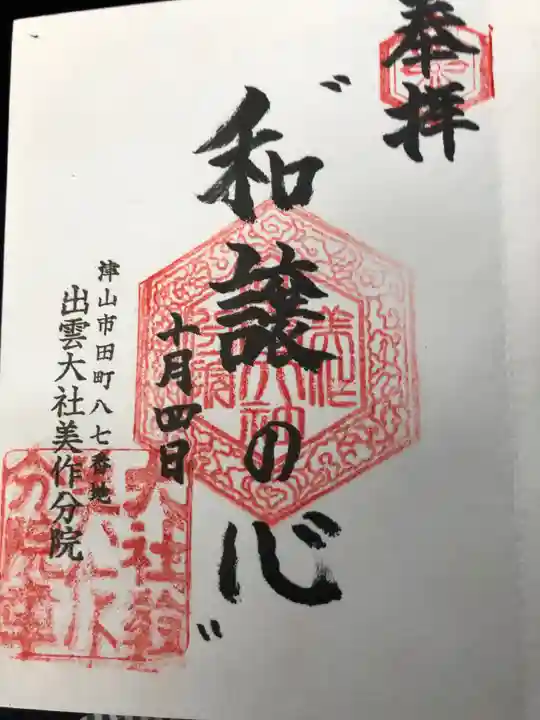 奉拝
〝和譲の心〟
十月四日
津山市田町八七番地
出雲大社美作分院